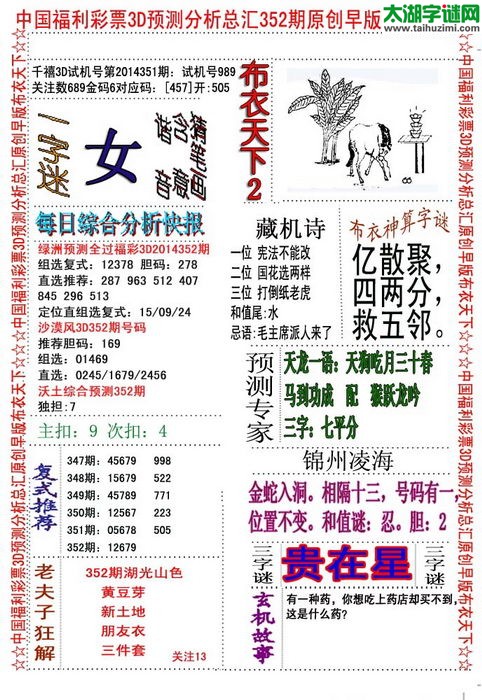 中国福利彩票3D预测分析总汇352期原创早版
太湖字谜网
www.taihuzimi.com
☆☆中国福利彩票3D预测分析总汇原创早版布衣天下☆☆
千禧3D试机号第2014351期：试机号989
关注数689金码6对应码：[457]开:505
一字迷
女
谐含猪羊画
音意
布衣天下2
每日综合分析快报
绿洲预测全过福彩3D2014352期
组选复式：12378 胆码：278
直选推荐：287 963 512 407
845 296 513
定位直组选复式：15/09/24
沙漠风3D352期号码
推荐胆码：169
组选：01469
直选：0245/1679/2456
沃土综合预测352期
独担:7
主扣：9 次扣：4
藏机诗
一位 宪法不能改
二位 国花选两样
三位 打倒纸老虎
和值尾:水
忌语:毛主席派人来了
布衣神算字谜
亿散聚，
四两分，
救五邻。
预测专家
天龙一语：天狗吃月三十春
马到功成 配 猴跃龙吟
三字：七平分
复式推荐
347期：45679 998
348期：15679 522
349期：45789 771
350期：12567 223
351期：05678 505
352期：12679
锦州凌海
金蛇入洞。相隔十三，号码有一，
位置不变。和值谜：忍。胆：2
三字谜
贵在星
三字谜
老夫子狂解
352期湖光山色
黄豆芽
新土地
朋友衣
三件套
关注13
玄机故事
有一种药，你想吃上药店却买不到，
这是什么药？
☆☆中国福利彩票3D预测分析总汇原创早版布衣天下☆☆